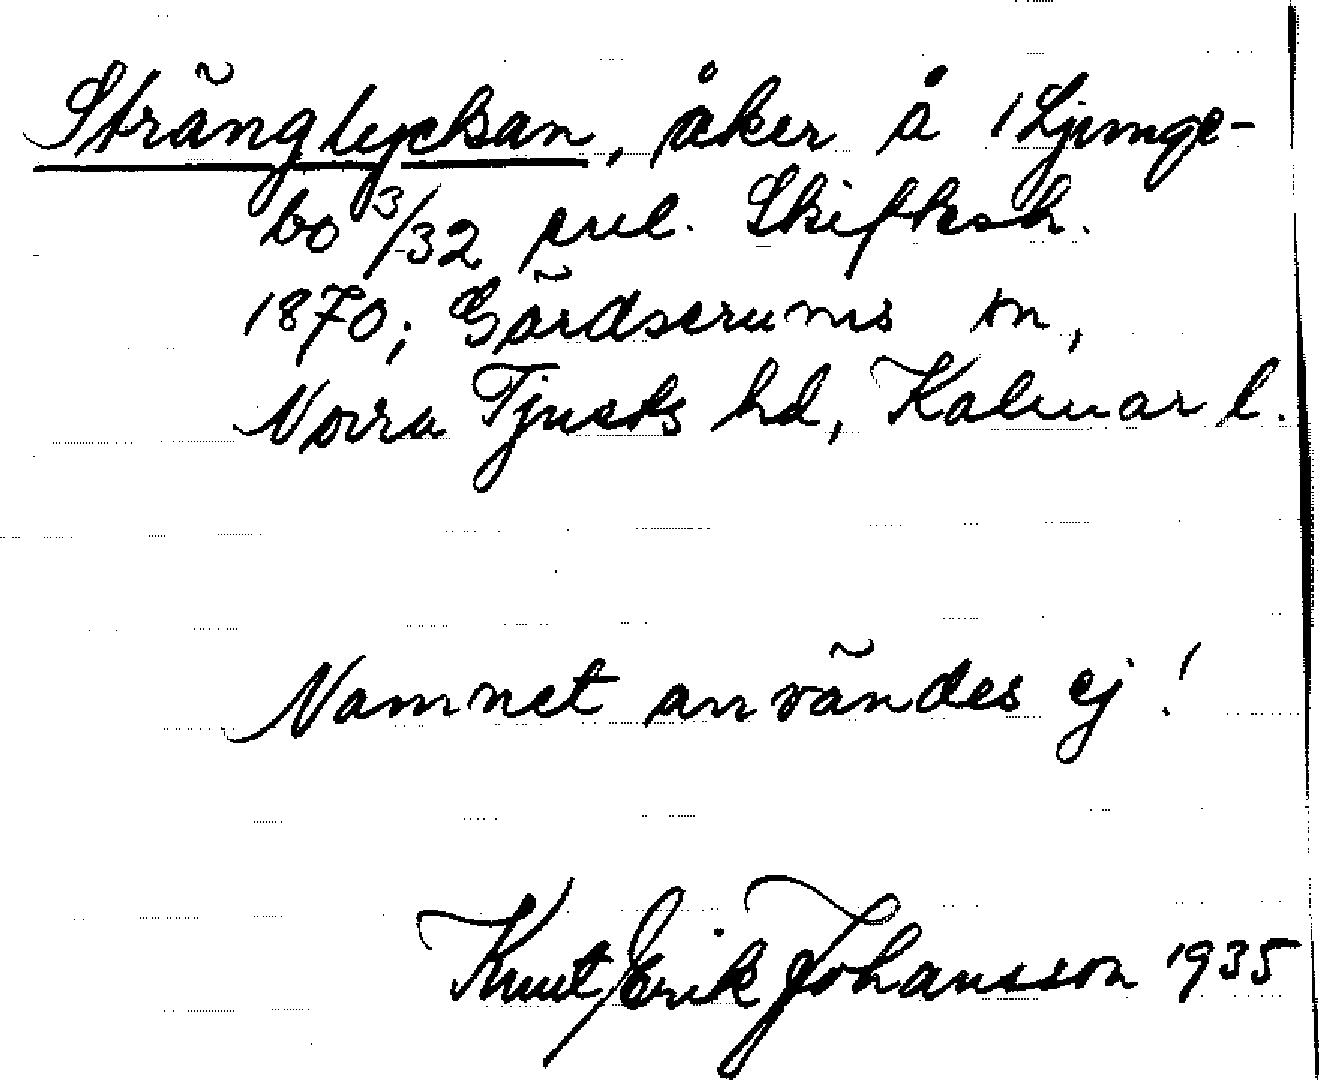 Stränglyckan, åker å 1 Ljunge-
bo 3/32 prel. Skifksh.
1870; Gärdserums sn,
Norra Tjusts hd, Kalmar l.
Namnet användes ej!
Knut Erik Johansson 1935